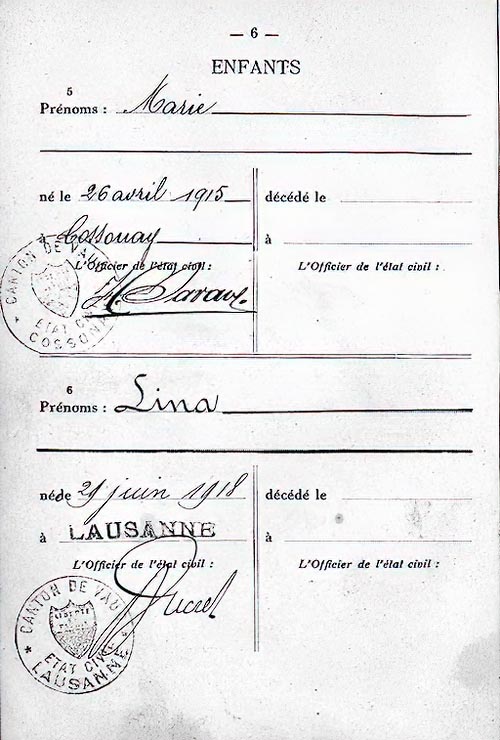 — 6 —
ENFANTS
5
Prénoms : Marie
né le 26 avril 1915
décédé le
à Cossonay
à
L'Officier de l'état civil :
L'Officier de l'état civil :
CANTON DE VAU
ETAT CI
COSSON
6
Prénoms : Lina
née le 21 juin 1918
décédé le
à LAUSANNE
à
L'Officier de l'état civil :
L'Officier de l'état civil :
CANTON DE VAU
LIBERTÉ
ET
PATRIE
ETAT CIV
LAUSANNE